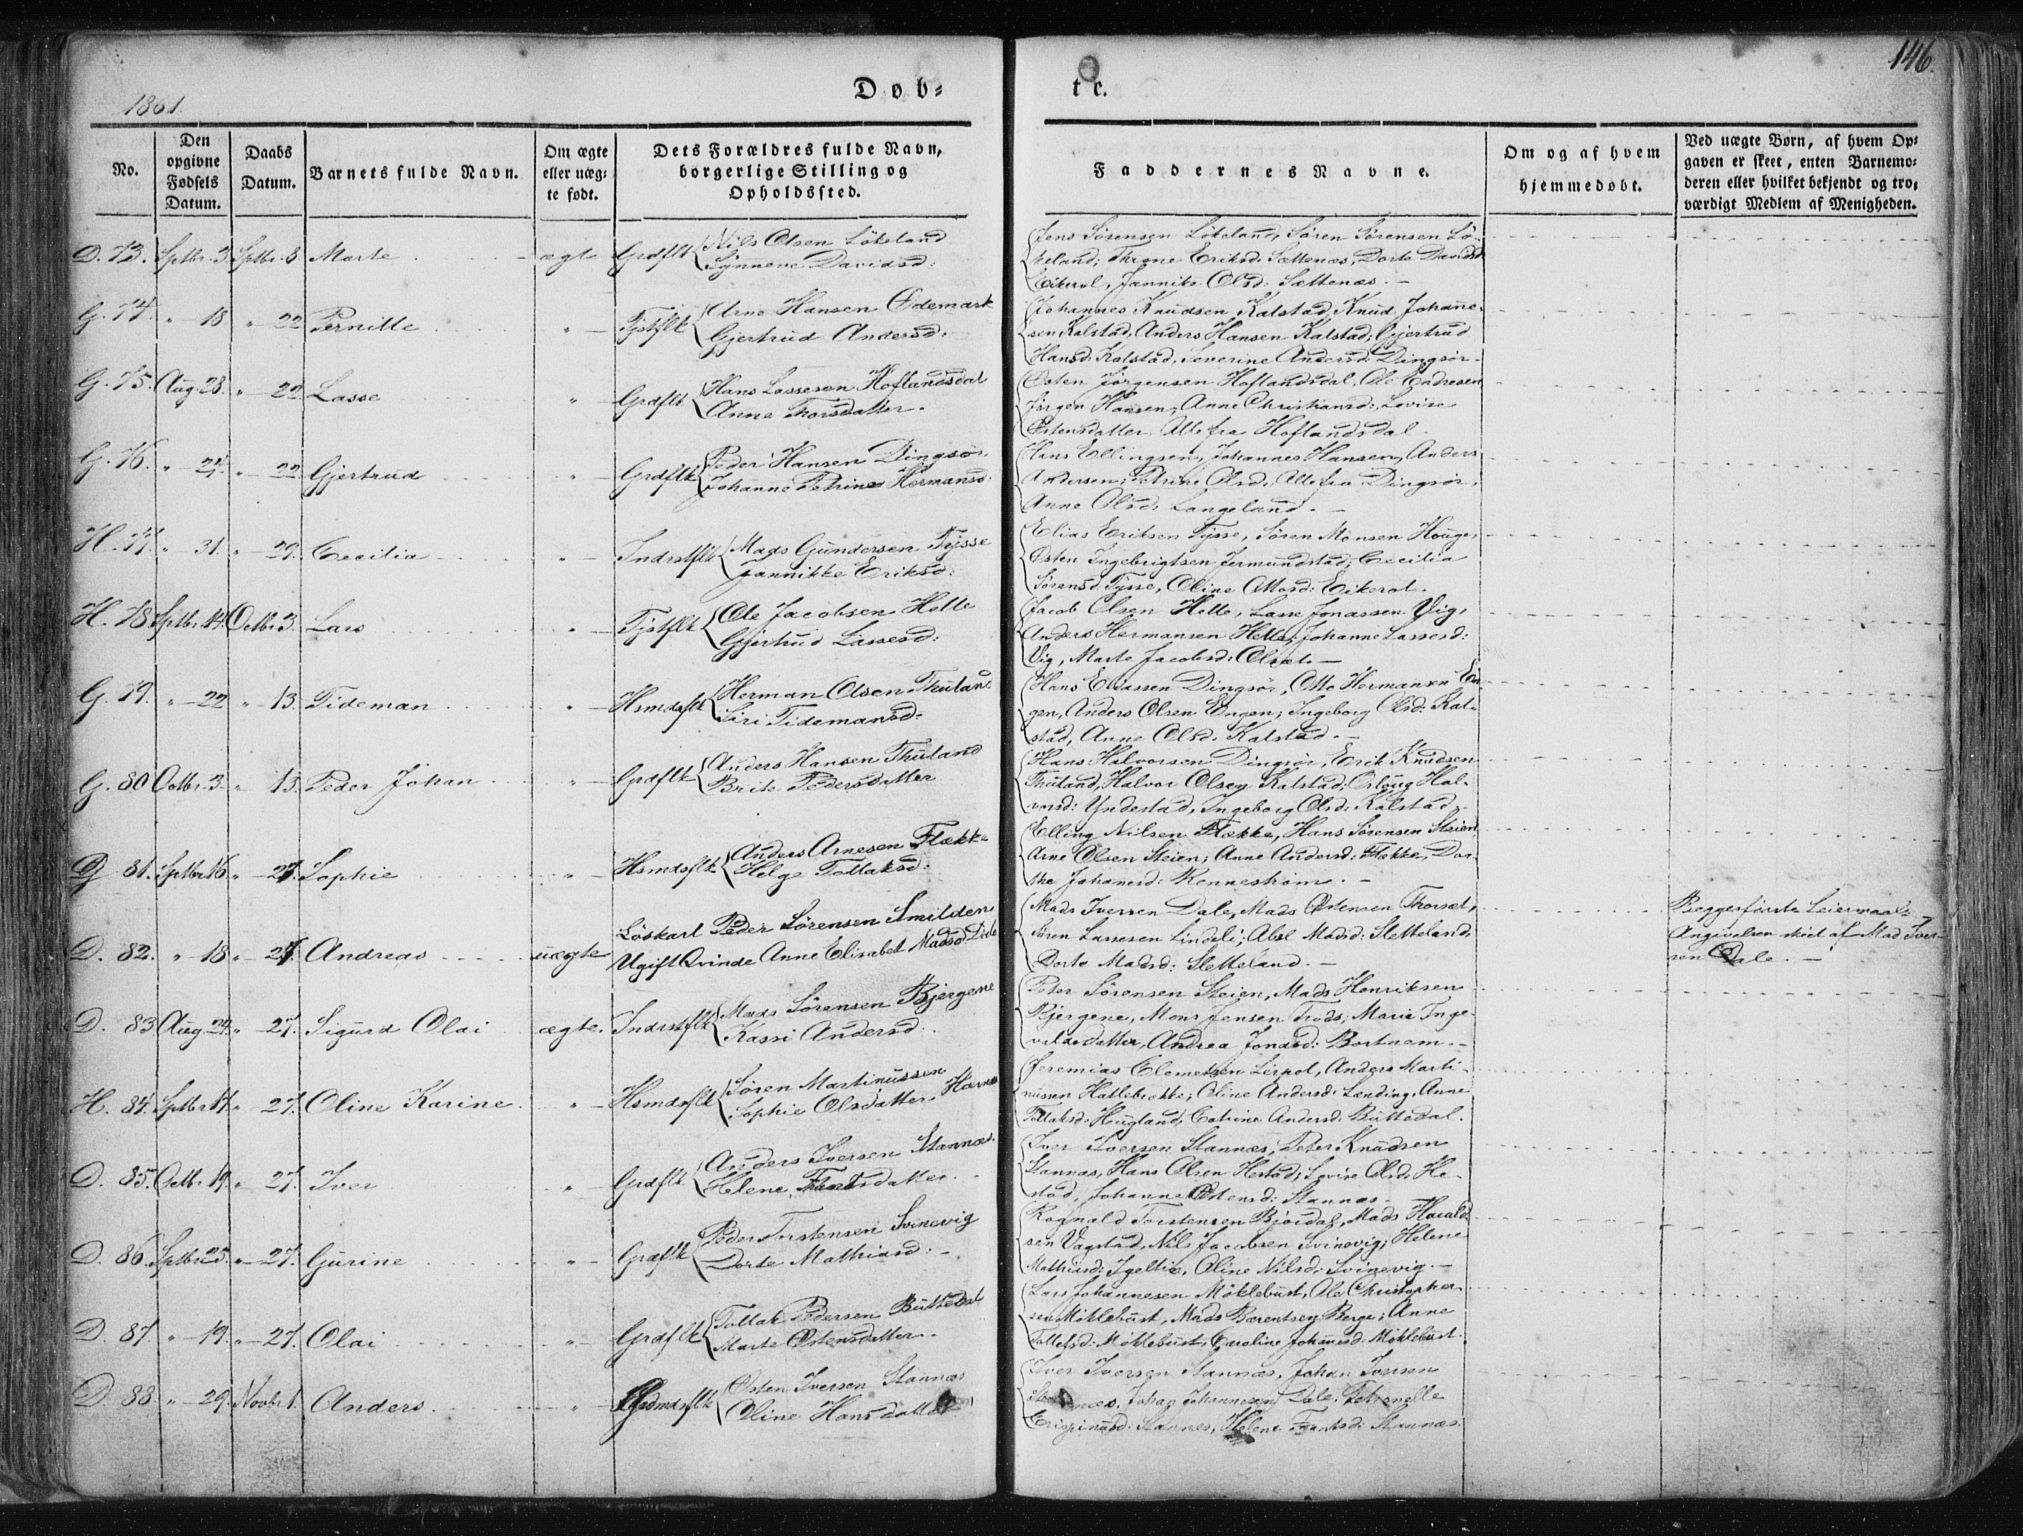 146.
1861.
Døb-
te.
No.
Den opgivne Fødsels Datum.
Daabs Datum.
Barnets fulde Navn.
Om ægte eller uæg-te født.
Dets Forældres fulde Navn, borgerlige Stilling og Opholdssted.
Faddernes Navne.
Om og af hvem hjemmedøbt.
Ved uægte Børn, af hvem Op-gaven er skeet, enten Barnemo-deren eller hvilket bekjendt og tro-værdigt Medlem af Menigheden.
D. 73. Sptbr. 3. Sptbr. 8 Marte ægte Grdflk Nils Olsen Løkeland
Synneve Davidsd:
Jens Sørensen Løkeland, Søren Sørensen Lø-
keland; Eriksd: Sættenæs, Dorte Davidsd
Eikerol, Jannike Olsd: Sættenæs.
G. 74. " 18 " 22 Pernille " Tjstflk Arne Hansen Ødemark
Gjertrud Andersd.
Johannes Knudsen Kalstad, Knud Johanne-
sen Kalstad, Anders Hansen Kalstad; Gjertrud
Hansd: Kalstad, Severine Andersd: Dingsør.
G. 75. Aug. 28. " 22 Lasse " Grdflk Hans Lassesen Hoflandsdal
Anne Thorsdatter.
Østen Jørgensen Hoflandsdal, Ole Endresen
Jørgen Hansen, Anne Christiansd: Lovise
Østensdatter. Alle fra Hoflandsdal.
G. 76. " 24. " 22 Gjertrud " Grdflk Peder Hansen Dingsør
Johanne Petrine Hermansd.
Hans Ellingsen, Johannes Hansen, Anders
Andersen; Petrine Olsd: Alle fra Dingsør,
Anne Olsd: Langeland.
H. 77. " 31. " 29. Cecilia " Indrstflk Mads Gundersen Tysse
Jannikke Eriksd:
Elias Eriksen Tysse, Søren Monsen Houge,
Østen Ingebrigtsen Jermundstad; Cecilia
Sørensd Tysse, Oline Mosd: Eikerol.
H. 78. Sptbr. 14. Octbr. 3. Lars " Tjstflk Ole Jacobsen Helle
Gjertrud Lassesd:
Jacob Olsen Helle, Lasse Jonassen Vig,
Anders Hermansen Helle, Johanne Lassesd:
Vig, Marte Jacobsd:
G. 79. " 22 " 13. Tideman " Hsmdsflk Herman Olsen Thuland
Siri Tidemansd.
Hans Eliassen Dingsør, Otto Hermansen En-
gen, Anders Olsen Engen; Ingeborg Olsd: Kal-
stad, Anne Olsd: Kalstad.
G. 80 Octbr. 3. " 13. Peder Johan " Grdflk Anders Hansen Thuland
Brite Pedersdatter
Hans Halvorsen Dingsør, Erik Knudsen
Thuland, Halvor Olsen Kalstad; Oslaug Hal-
vorsd: Yndestad, Ingeborg Olsd: Kalstad.
D 81. Sptbr. 16. " 27. Sophie " Hsmdsflk Anders Arnesen Flekk-
Helge Tollaksd:
Elling Nilsen Flekke, Hans Sørensen Steien
Arne Olsen Steien; Anne Andersd: Flekke, Dor-
the Johanesd: Rennestrøm.
D. 82. " 18 " 27. Andreas uægte Løskarl Peder Sørensen Smilden
Ugift Qvinde Anne Elisabet Madsd Dale
Mads Iversen Dale, Mads Østensen Thorset,
Søren Lassesen Lindeli; Abel Madsd: Sletteland,
Dorte Madsd: Sletteland.
Begges første Leiermaal.
Angivelsen skeet af Mad Iver-
sen Dale.
D. 83 Aug. 24. " 27. Sigurd Olai ægte. Indrstflk Mads Sørensen Bjergene
Kassi Andersd.
Peter Sørensen Steien, Mads Henriksen
Bjergene, Mons Jensen; Marie Inge-
valdsdatter, Andrea Jonasd: Bortnem.
H. 84. Sptbr. 14. " 27. Oline Karine " Hsmdsflk Søren Martinussen
Sophie Olsdatter Hernes
Jeremias Clemetsen Lirpol, Anders Marti-
nussen Hatlebrekke; Oline Andersd: Lending, Anne
Tollaksd: Hougland, Catrine Andersd: Buttedal.
D. 85. Octbr. 19. " 27. Iver " Grdflk Anders Iversen Stannæs.
Helene Fantsdatter.
Iver Iversen Stannæs, Peter Knudsen
Stannæs, Hans Olsen Hestad; Lovise Olsd: He-
stad, Johanne Østensd: Stannæs.
D. 86. Sptbr. 22. " 27. Gurine " Grdflk Peder Torstensen Svinevig
Dorte Mathiasd:
Ragnald Torstensen Bjordal, Mads Harald-
sen Vagstad, Nils Jacobsen Svinevig; Helene
Mathiasd:, Oline Nilsd: Svinevig.
D. 87. " 19. " 27. Olai " Grdflk Tollak Pedersen Buttedal
Marte Østensdatter.
Lars Johannesen Møklebust, Ole Christopher-
sen Møklebust, Mads Bærentsen Berge; Anne
Tollefsd: Møklebust, Caroline Johanesd: Møklebust.
D. 88. " 29. Novbr. 1. Anders " Hsmdsflk Østen Iversen Stannæs
Oline Hansdatter
Iver Iversen Stannæs, Johan Iversen
Stannæs, Johan Johannesen Dale; Petronelle
Crispinusd: Stannes, Helene Fantsd: Stannæs.